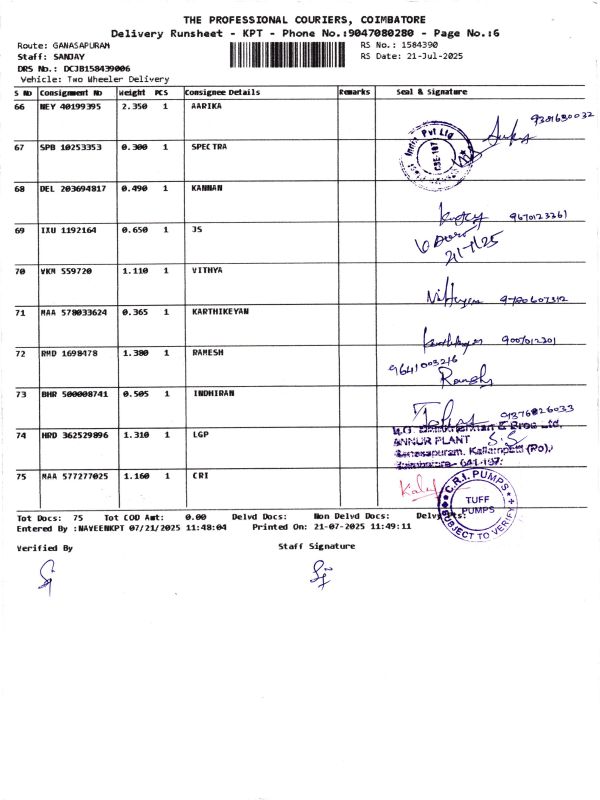 THE PROFESSIONAL COURIERS, COIMBATORE
Delivery Runsheet - KPT - Phone No.:9047080280 - Page No.:6
Route: GANASAPURAM
RS No.: 1584390
Staff: SANJAY
RS Date: 21-Jul-2025
DRS No.: DCJB158439006
Vehicle: Two Wheeler Delivery
S No Consignment No Weight PCS Consignee Details Remarks Seal & Signature
66 NEY 40199395 2.350 1 AARIKA
9381630032
Pvt Ltd
67 SPB 10253353 0.300 1 SPECTRA
68 DEL 203694817 0.490 1 KANNAN
9670123261
69 IXU 1192164 0.650 1 JS
21/7/25
70 VKM 559720 1.110 1 VITHYA
9780607312
71 MAA 578033624 0.365 1 KARTHIKEYAN
9007012301
72 RMD 1698478 1.380 1 RAMESH
9641003216
Ramesh
73 BHR 500008741 0.505 1 INDHIRAN
9376826033
& Bros Ltd,
74 HRD 362529896 1.310 1 LGP
ANNUR PLANT
Ganesapuram, Kallampatti (Po),
Coimbatore - 641 107.
75 MAA 577277025 1.160 1 CRI
C.R.I. PUMPS
TUFF
PUMPS
SUBJECT TO VERIFY
Tot Docs: 75 Tot COD Amt: 0.00 Delvd Docs: Non Delvd Docs:
Entered By :NAVEENKPT 07/21/2025 11:48:04 Printed On: 21-07-2025 11:49:11
Verified By Staff Signature